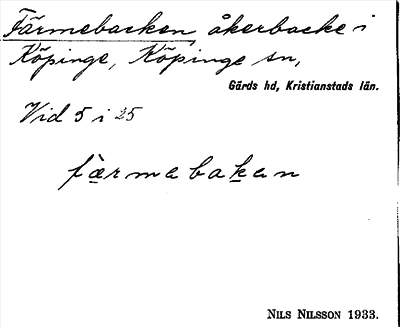 Färmebacken, åkerbacke i
Köpinge, Köpinge sn,
Gärds hd, Kristianstads län.
Vid 5 i 25
färmebakan
NILS NILSSON 1933.